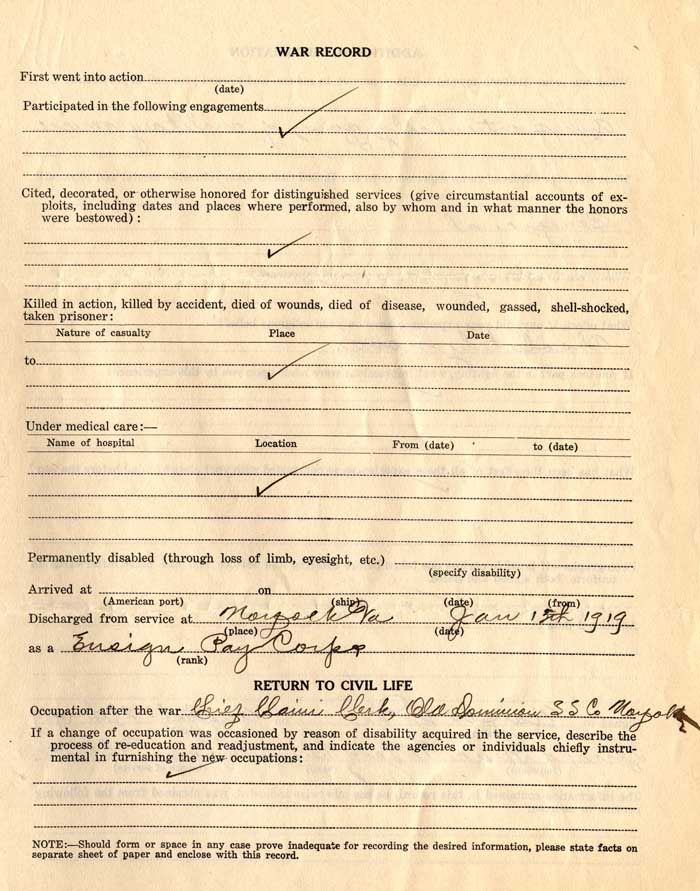 WAR RECORD
First went into action
(date)
Participated in the following engagements
Cited, decorated, or otherwise honored for distinguished services (give circumstantial accounts of ex-
ploits, including dates and places where performed, also by whom and in what manner the honors
were bestowed) :
Killed in action, killed by accident, died of wounds, died of disease, wounded, gassed, shell-shocked,
taken prisoner:
Nature of casualty Place Date
to
Under medical care:—
Name of hospital Location From (date) to (date)
Permanently disabled (through loss of limb, eyesight, etc.)
(specify disability)
Arrived at on
(American port) (ship) (date) (from)
Discharged from service at Norfolk Va Jan 15th 1919
(place) (date)
as a Ensign Pay Corps
(rank)
RETURN TO CIVIL LIFE
Occupation after the war Chief Claim Clerk, Old Dominion S S Co Norfolk
If a change of occupation was occasioned by reason of disability acquired in the service, describe the
process of re-education and readjustment, and indicate the agencies or individuals chiefly instru-
mental in furnishing the new occupations:
NOTE:—Should form or space in any case prove inadequate for recording the desired information, please state facts on
separate sheet of paper and enclose with this record.